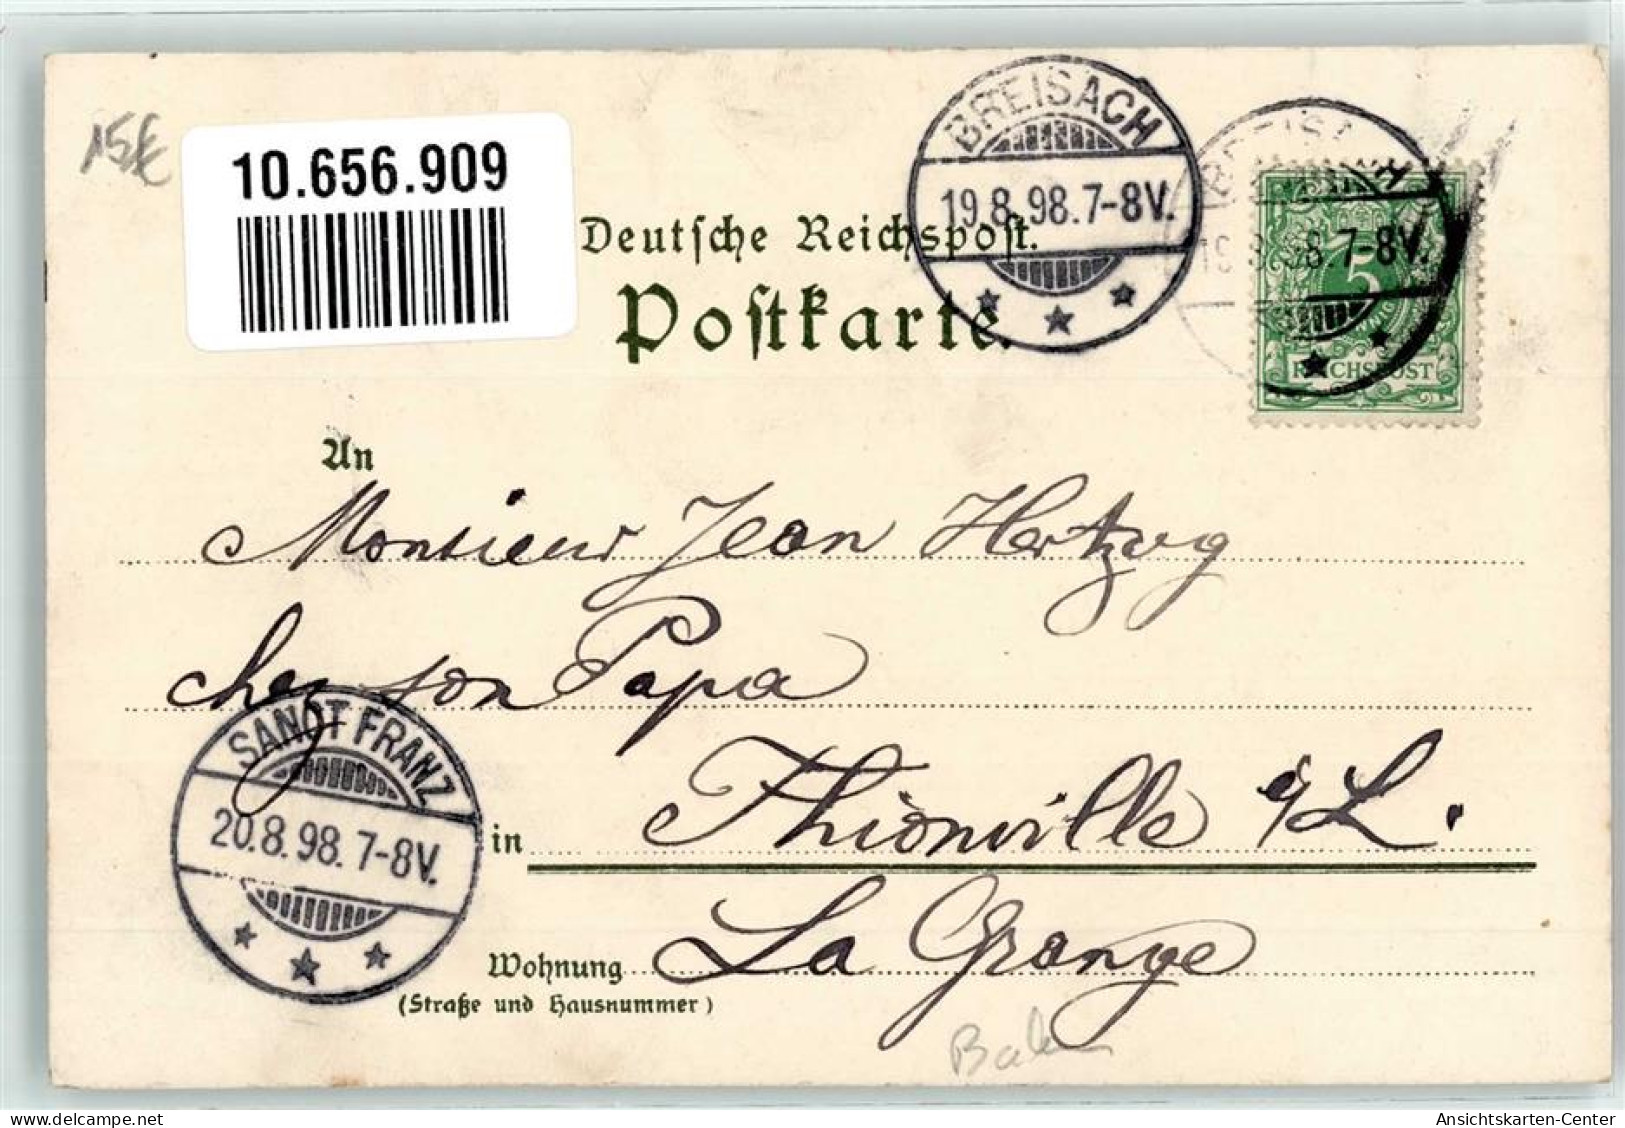 15€
10.656.909
BREISACH
19.8.98.7-8V.
BREISACH
19.8.98.7-8V.
5
REICHSPOST
Deutsche Reichspost.
Postkarte.
An
Monsieur Jean Hertzog
chez son Papa
SANCT FRANZ
20.8.98.7-8V.
in Thionville s/L.
Wohnung La Grange
(Straße und Hausnummer)
Ansichtskarten-Center